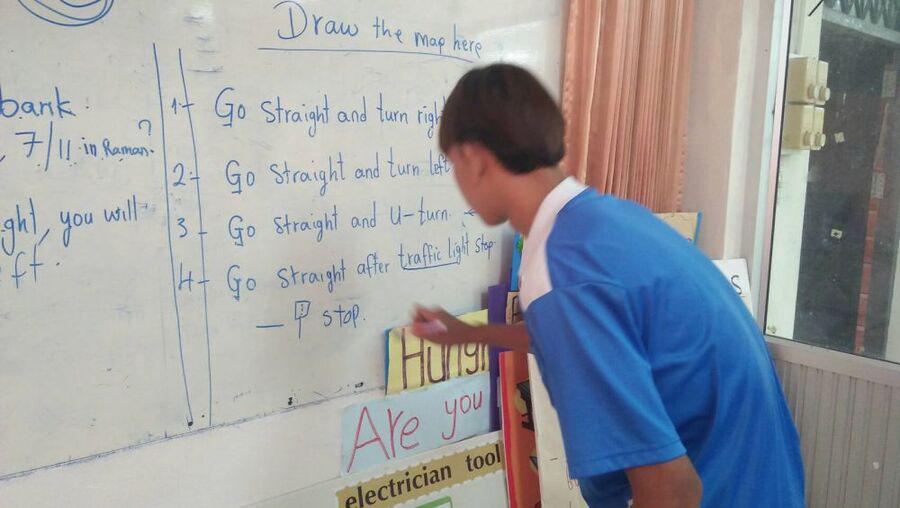 Draw the map here
bank.
7/11 in Raman?
you will
1- Go straight and turn
2- Go straight and turn left
3- Go straight and U-turn.
4- Go straight after traffic light stop.
stop.
Are you
electrician tool
S